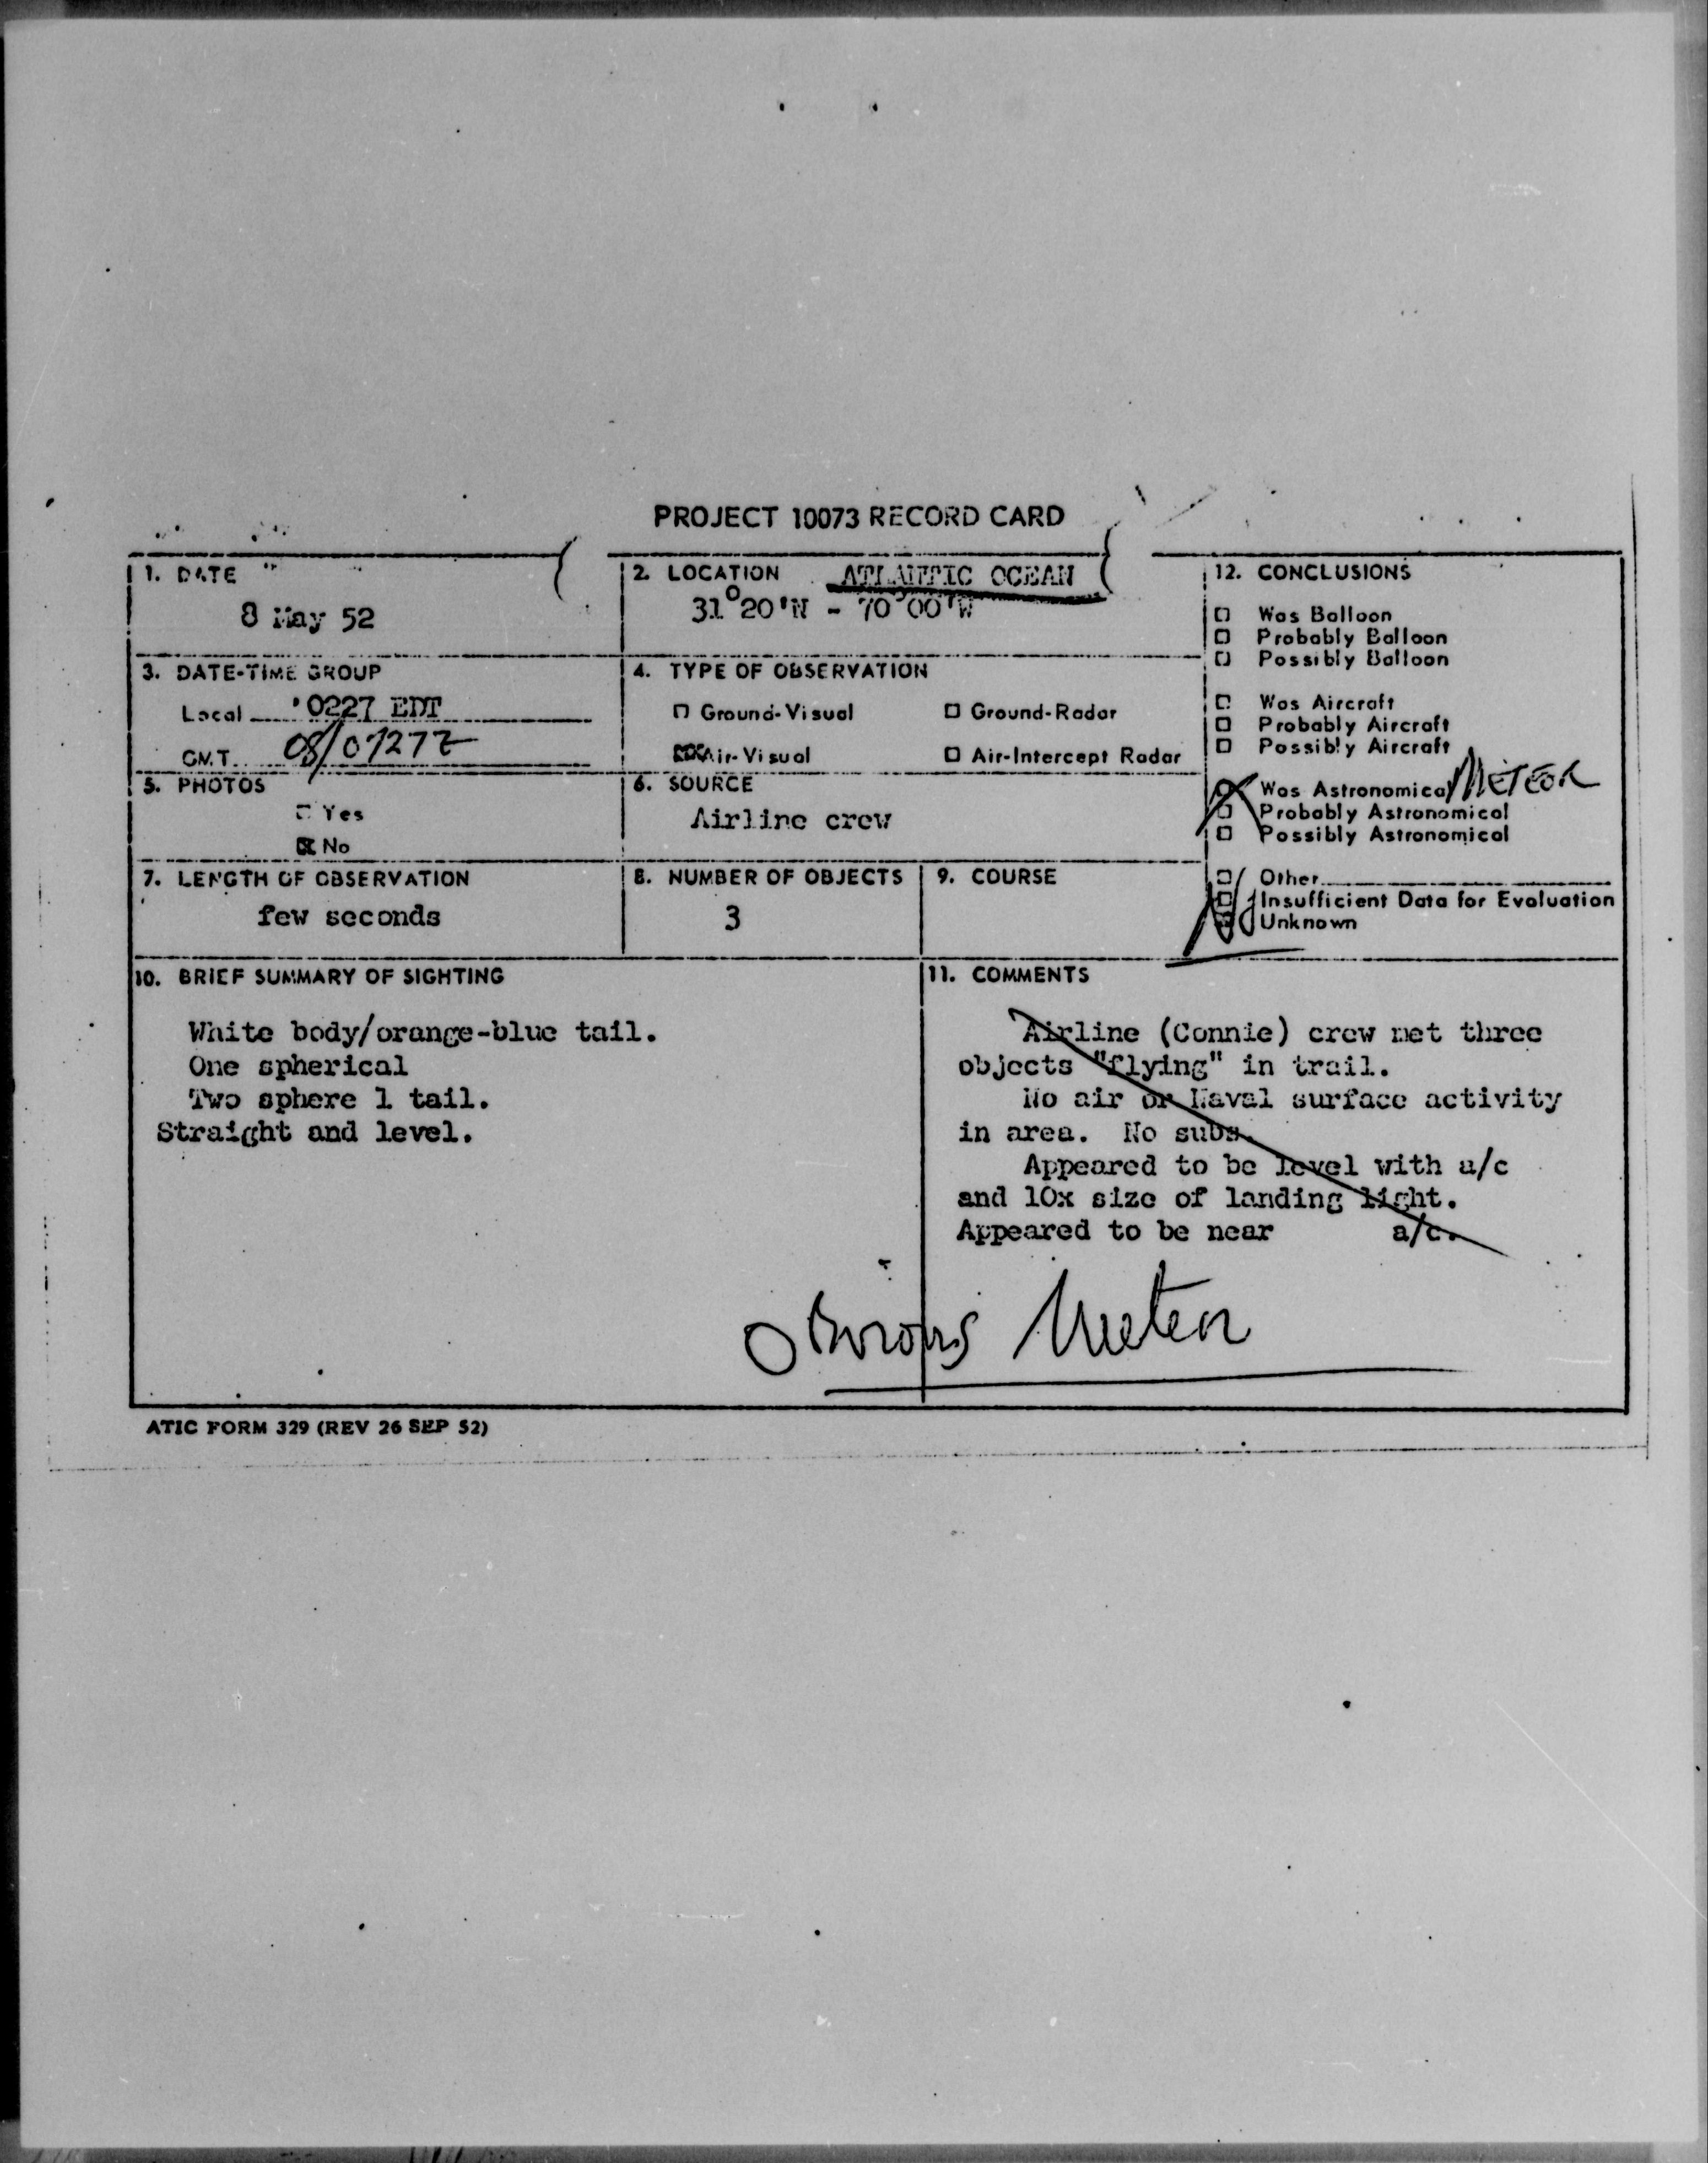 PROJECT 10073 RECORD CARD
1. DATE
8 May 52
2. LOCATION ATLANTIC OCEAN
31°20'N - 70°00'W
3. DATE-TIME GROUP
Local 0227 EDT
GMT. 08/0727Z
4. TYPE OF OBSERVATION
Ground-Visual Ground-Radar
Air-Visual Air-Intercept Radar
5. PHOTOS
Yes
No
6. SOURCE
Airline crew
7. LENGTH OF OBSERVATION
few seconds
8. NUMBER OF OBJECTS
3
9. COURSE
12. CONCLUSIONS
Was Balloon
Probably Balloon
Possibly Balloon
Was Aircraft
Probably Aircraft
Possibly Aircraft
Was Astronomical METEOR
Probably Astronomical
Possibly Astronomical
Other
Insufficient Data for Evaluation
Unknown
10. BRIEF SUMMARY OF SIGHTING
White body/orange-blue tail.
One spherical
Two sphere 1 tail.
Straight and level.
11. COMMENTS
Airline (Connie) crew met three
objects "flying" in trail.
No air or Naval surface activity
in area. No subs.
Appeared to be level with a/c
and 10x size of landing light.
Appeared to be near a/c.
Obvious Meteor
ATIC FORM 329 (REV 26 SEP 52)